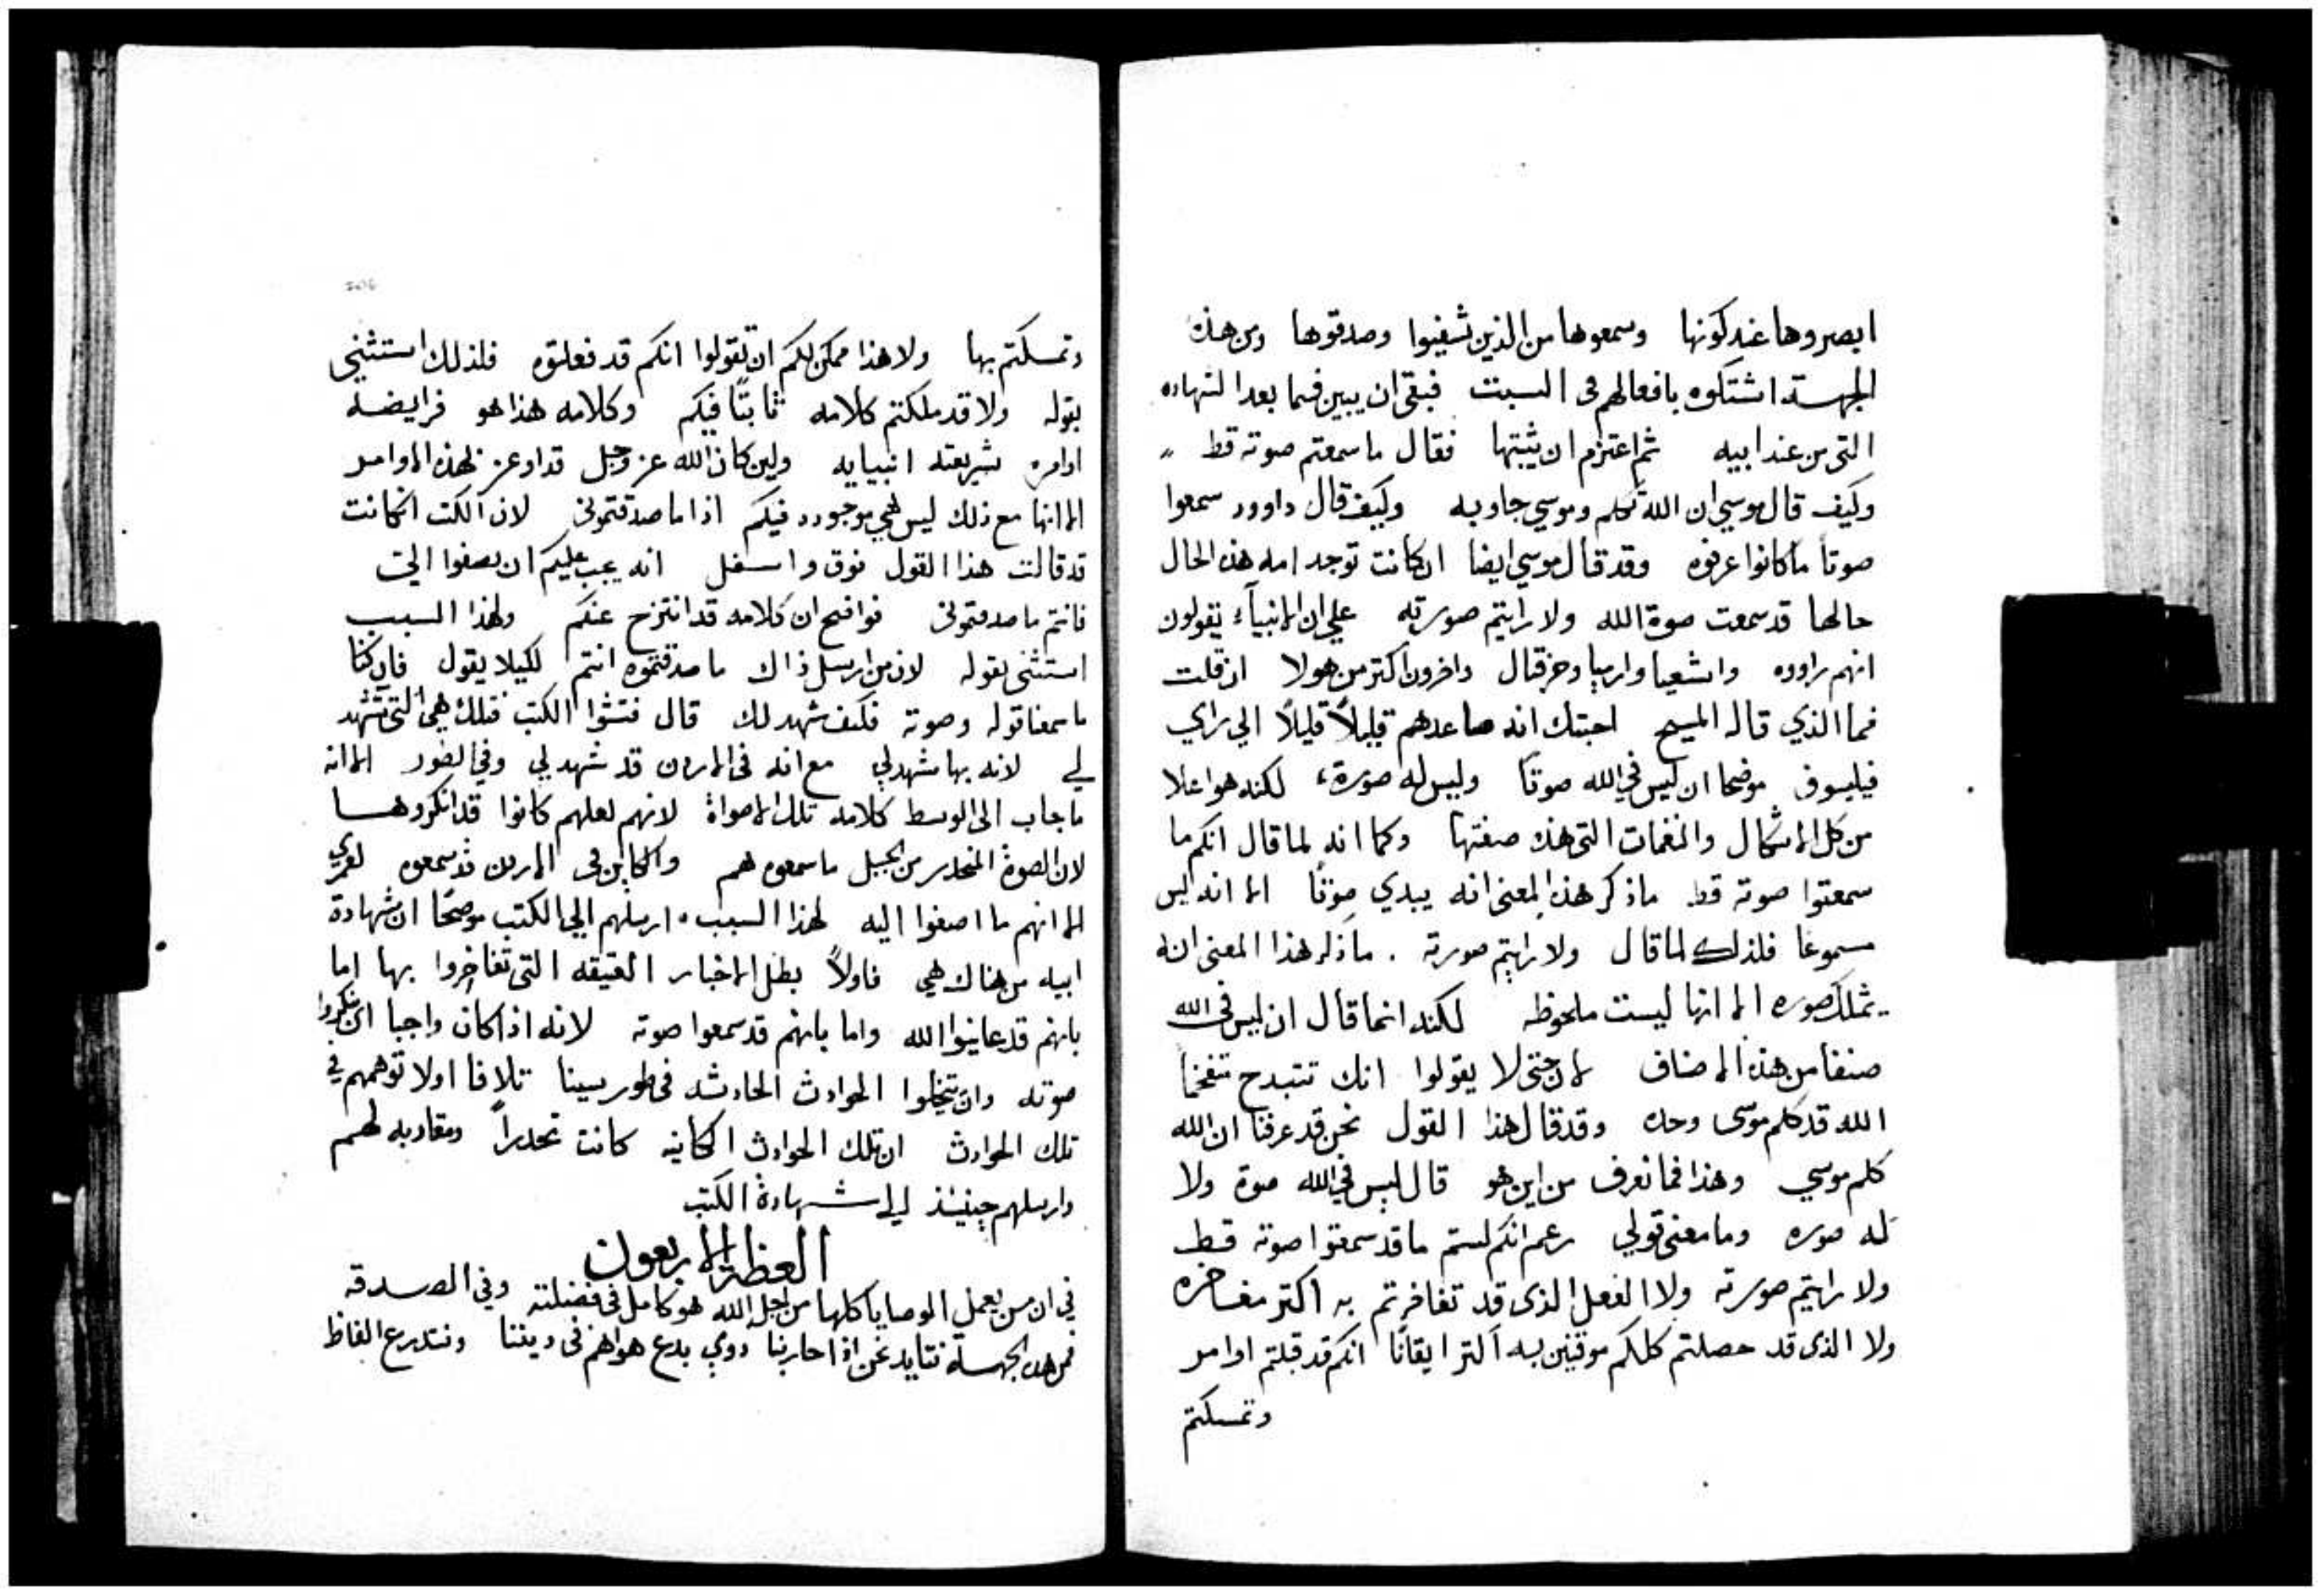 ابصروها عند كونها وسمعوها من الذين شفيوا وصدقوها ومن هذه
الجهة اشتكوه بافعالهم في السبت فبقي ان يبين فيما بعد الشهاده
التي من عند ابيه ثم اعتزم ان يثبتها فقال ما سمعتم صوته قط
وكيف قال موسي ان الله تكلم وموسي جاوبه وكيف قال داوود سمعوا
صوتا ما كانوا عرفوه وقد قال موسي ايضا ان كانت توجد امه هذه الحال
حالها قد سمعت صوة الله ولا رايتم صورته علي ان الانبياء يقولون
انهم راووه واشعيا وارميا وحزقال واخرون اكتر من هولا ان قلت
فما الذي قاله المسيح اجبتك انه صاعدهم قليلاً قليلاً الي راي
فيليسوف موضحا ان ليس في الله صوتا وليس له صورة لكنه هو اعلا
من كل الاشكال والنغمات التي هذه صفتها وكما انه لما قال انكم ما
سمعتوا صوته قط ما ذكر هذا المعني انه يبدي صوتا الا انه ليس
مسموعا فلذلك لما قال ولا رايتم صورته . ما ذكر هذا المعني انه
يمتلك صوره الا انها ليست ملحوظه لكنه انما قال ان ليس في الله
صنفا من هذه الاصناف لان حتي لا يقولوا انك تتبدح تنفخا
الله قد كلم موسي وحده وقد قال هذا القول نحن قد عرفنا ان الله
كلم موسي وهذا فما نعرف من اين هو قال ليس في الله صوة ولا
له صوره وما معني قولي زعم انكم لستم ما قد سمعتوا صوته قط
ولا رايتم صورته ولا الفعل الذي قد تفاخرتم به اكتر مفاخره
ولا الذي قد حصلتم كلكم موقنين به اكتر ايقانا انكم قد قبلتم اوامر
وتمسكتم
وتمسكتم بها ولا هذا ممكن لكم ان تقولوا انكم قد فعلتوه فلذلك استثني
بقوله ولا قد ملكتم كلامه ثابتًا فيكم وكلامه هذا هو فرايضه
اوامره شريعته انبيايه ولين كان الله عز وجل قد اوعز لهذه الاوامر
الا انها مع ذلك ليس هي موجوده فيكم اذا ما صدقتموني لان الكتب ان كانت
قد قالت هذا القول فوق واسفل انه يجب عليكم ان تصغوا الي
فانتم ما صدقتموني فواضح ان كلامه قد انتزح عنكم ولهذا السبب
استثني بقوله لان من ارسل ذاك ما صدقتموه انتم لكيلا يقول فان كنا
ما سمعنا قوله وصوته فكيف شهد لك قال فتشوا الكتب فتلك هي التي تشهد
لي لانه بها شهد لي مع انه في الاردن قد شهد لي وفي الطور الا انه
ما جاب الي الوسط كلامه تلك الاصواة لانهم لعلهم كانوا قد انكروها
لان الصوة المنحدر من الجبل ما سمعوه هم والكاين في الاردن قد سمعوه لعمري
الا انهم ما اصغوا اليه لهذا السبب ارسلهم الي الكتب موضحًا ان شهادة
ابيه من هناك هي فاولاً بطل الاخبار العتيقه التي تفاخروا بها اما
بانهم قد عاينوا الله واما بانهم قد سمعوا صوته لانه اذا كان واجبا ان ينكروا
صوته وان يتخيلوا الحوادث الحادثه في طور سينا تلافا اولا توهمهم في
تلك الحوادث ان تلك الحوادث الكاينه كانت تحدراً ومقاربه لهم
وارسلهم حينيذ الي شهادة الكتب
العظة الاربعون
في ان من يعمل الوصايا كلها من اجل الله هو كامل في فضيلته وفي الصدقه
فمن هذه الجهة نتايد نحن اذا حاربنا ذوي بدع هواهم في ديننا ونتدرع الفاظ